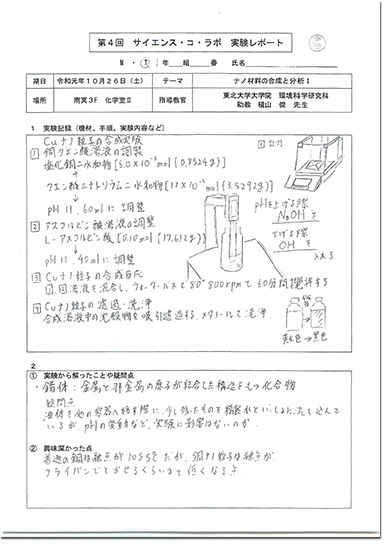 第4回 サイエンス・コ・ラボ 実験レポート
N・Ⅰ 1年 組 番 氏名
期日 令和元年10月26日（土） テーマ ナノ材料の合成と分析Ⅰ
場所 南冥3F 化学室Ⅱ 指導教官 東北大学大学院 環境科学研究科
助教 横山 俊 先生
1 実験記録（機材、手順、実験内容など）
Cuナノ粒子の合成実験
1 銅クエン酸溶液の調製
塩化銅二水和物[5.0×10⁻³mol(0.8524g)]
+
クエン酸三ナトリウム二水和物[12×10⁻³mol(3.5292g)]
↓
pH 11, 60mlに調製
pHを上げる際
NaOH を
下げる際
を
入れる.
2 アスコルビン酸溶液の調製
L-アスコルビン酸[0.10mol(17.612g)]
↓
pH 11, 40mlに調製
3 Cuナノ粒子の合成反応
1,2溶液を混合し、ウォーターバスで80° 800rpmで60分間攪拌する
4 Cuナノ粒子の濾過・洗浄
合成溶液中の沈殿物を吸引濾過する、メタノールで洗浄.
黄色→黒色
2
① 実験から解ったことや疑問点
・錯体：金属と非金属の原子が結合した構造をもつ化合物
疑問点
液体を他の容器へ移す際に、少し残ったものを精製水といっしょに流し込んで
いるが、pHの変動など、実験に影響はないのか.
② 興味深かった点
普通の銅は融点が1085℃だが、銅ナノ粒子は融点が、
フライパンでとかせるくらいまで低くなる点.